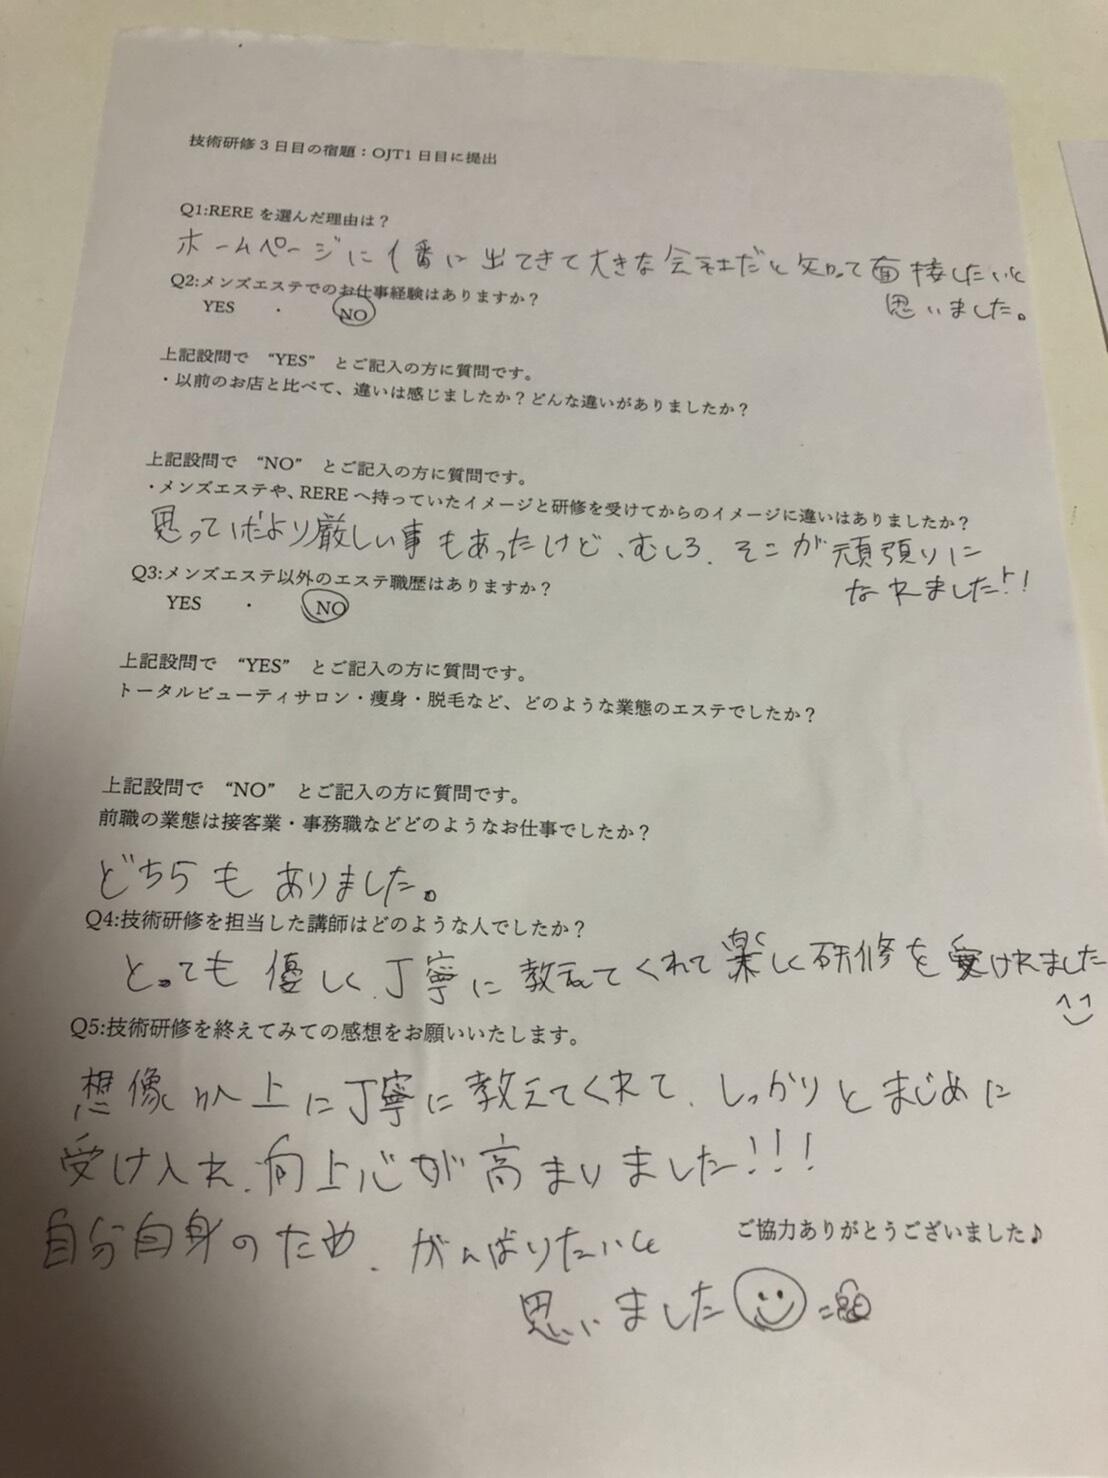 技術研修3日目の宿題：OJT1日目に提出
Q1:RERE を選んだ理由は？
ホームページに1番に出てきて大きな会社だと知って面接したいと
思いました。
Q2:メンズエステでのお仕事経験はありますか？
YES ・ NO
上記設問で “YES” とご記入の方に質問です。
・以前のお店と比べて、違いは感じましたか？どんな違いがありましたか？
上記設問で “NO” とご記入の方に質問です。
・メンズエステや、RERE へ持っていたイメージと研修を受けてからのイメージに違いはありましたか？
思っていたより厳しい事もあったけど、むしろ、そこが頑張りに
なれました!!
Q3:メンズエステ以外のエステ職歴はありますか？
YES ・ NO
上記設問で “YES” とご記入の方に質問です。
トータルビューティサロン・痩身・脱毛など、どのような業態のエステでしたか？
上記設問で “NO” とご記入の方に質問です。
前職の業態は接客業・事務職などどのようなお仕事でしたか？
どちらも ありました。
Q4:技術研修を担当した講師はどのような人でしたか？
とっても 優しく、丁寧に教えてくれて楽しく研修を受けれました
Q5:技術研修を終えてみての感想をお願いいたします。
想像以上に丁寧に教えてくれて、しっかりとまじめに
受け入れ、向上心が高まりました!!!
自分自身のため、がんばりたいと
ご協力ありがとうございました♪
思いました